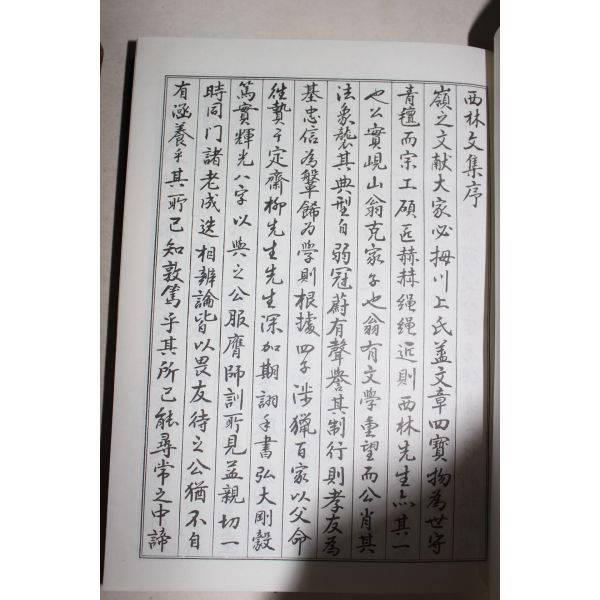 西林文集序
嶺之文献大家必拇川上氏盖文章四寶物為世守
青氊而宗工碩匠赫赫绳绳近則西林先生亦其一
也公實峴山翁克家子也翁有文學重望而公肖其
法象襲其典型自弱冠蔚有聲譽其制行則孝友為
基忠信為鞶餙為學則根據四子涉獵百家以父命
往贄于定齋柳先生先生深加期詡手書弘大剛毅
篤實輝光八字以與之公服膺師訓所見益親切一
時同门諸老成迭相辨論皆以畏友待之公猶不自
有涵養乎其所已知敦篤乎其所已能尋常之中諦